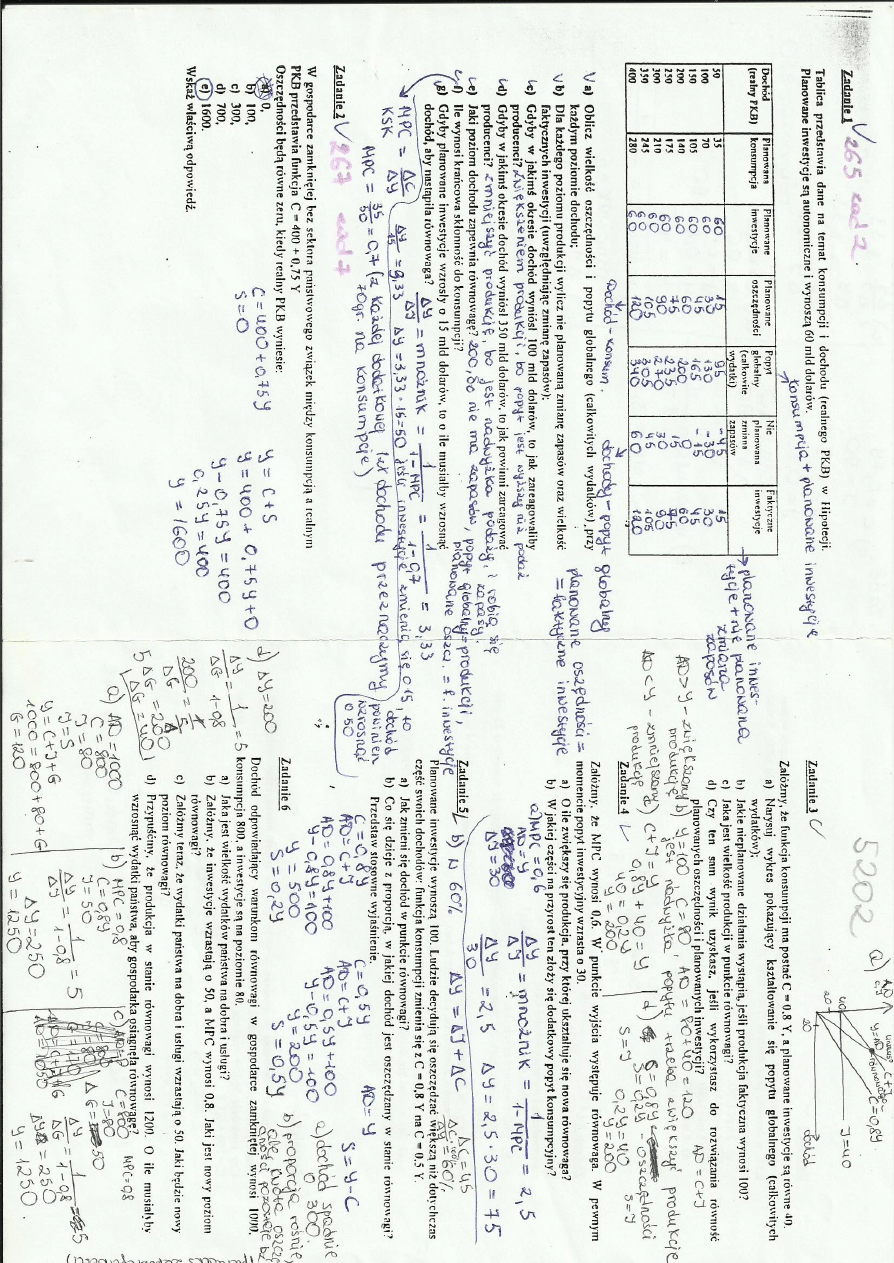 Zadanie 1 265 zad 2.
Tablica przedstawia dane na temat konsumpcji i dochodu (realnego PKB) w Hipotecji.
Planowane inwestycje są autonomiczne i wynoszą 60 mld dolarów.
konsumpcja + planowane inwestycje
Dochód (realny PKB) | Planowana konsumpcja | Planowane inwestycje | Planowane oszczędności | Popyt globalny (całkowite wydatki) | Nie planowana zmiana zapasów | Faktyczne inwestycje
50 35 60 15 95 -45 15
100 70 60 30 130 -30 30
150 105 60 45 165 -15 45
200 140 60 60 200 0 60
250 175 60 75 235 15 75
300 210 60 90 270 30 90
350 245 60 105 305 45 105
400 280 60 120 340 60 120
→ planowane inwestycje + nie planowana zmiana zapasów
Dochód - konsum.
dochody - popyt globalny
planowane oszczędności =
= faktyczne inwestycje
a) Oblicz wielkość oszczędności i popytu globalnego (całkowitych wydatków) przy
każdym poziomie dochodu;
b) Dla każdego poziomu produkcji wylicz nie planowaną zmianę zapasów oraz wielkość
faktycznych inwestycji (uwzględniając zmianę zapasów);
c) Gdyby w jakimś okresie dochód wyniósł 100 mld dolarów, to jak zareagowaliby
producenci? zwiększeniem produkcji, bo popyt jest wyższy niż podaż
d) Gdyby w jakimś okresie dochód wyniósł 350 mld dolarów, to jak powinni zareagować
producenci? zmniejszyć produkcję, bo jest nadwyżka podaży i robią się zapasy.
e) Jaki poziom dochodu zapewnia równowagę? 200, bo nie ma zapasów, popyt globalny = produkcji,
planowane oszcz. = f. inwestycje
f) Ile wynosi krańcowa skłonność do konsumpcji?
g) Gdyby planowane inwestycje wzrosły o 15 mld dolarów, to o ile musiałby wzrosnąć
dochód, aby nastąpiła równowaga?
ΔY/ΔJ = mnożnik = 1/(1-MPC) = 1/(1-0,7) = 3,33
MPC = ΔC/ΔY
KSK
ΔY/15 = 3,33 ΔY = 3,33 · 15 = 50 jeśli inwestycje zmienią się o 15, to dochód powinien wzrosnąć o 50
MPC = 35/50 = 0,7 (z każdej dodatkowej 1zł dochodu przeznaczymy
70gr na konsumpcję)
Zadanie 2 267 zad 7
W gospodarce zamkniętej bez sektora państwowego związek między konsumpcją a realnym
PKB przedstawia funkcja C = 400 + 0,75 Y
Oszczędności będą równe zeru, kiedy realny PKB wyniesie:
a) 0,
b) 100,
c) 300,
d) 700,
e) 1600.
Wskaż właściwą odpowiedź.
C = 400 + 0,75Y
S = 0
Y = C + S
Y = 400 + 0,75Y + 0
Y - 0,75Y = 400
0,25Y = 400
Y = 1600
5202
Zadanie 3
Załóżmy, że funkcja konsumpcji ma postać C = 0,8 Y, a planowane inwestycje są równe 40.
a) Narysuj wykres pokazujący kształtowanie się popytu globalnego (całkowitych
wydatków);
b) Jakie nieplanowane działania wystąpią, jeśli produkcja faktyczna wynosi 100?
c) Jaka jest wielkość produkcji w punkcie równowagi?
d) Czy ten sam wynik uzyskasz, jeśli wykorzystasz do rozwiązania równość
planowanych oszczędności i planowanych inwestycji?
a)
AD
C+J
C=0,8Y
J=40
dochód
AD = C+J
AD > Y - zwiększamy produkcję
AD < Y - zmniejszamy produkcję
b) Y=100 C=80, AD = 80+40=120
jest nadwyżka popytu trzeba zwiększyć produkcję
c) C+J=Y
0,8Y+40=Y
40=0,2Y
Y=200
d)
S=0,2Y - oszczędności
S=J
0,2Y=40
Y=200
S=J
Zadanie 4
Załóżmy, że MPC wynosi 0,6. W punkcie wyjścia występuje równowaga. W pewnym
momencie popyt inwestycyjny wzrasta o 30.
a) O ile zwiększy się produkcja, przy której ukształtuje się nowa równowaga?
b) W jakiej części na przyrost ten złoży się dodatkowy popyt konsumpcyjny?
a) MPC = 0,6
AD = Y
ΔJ = 30
ΔY/ΔJ = mnożnik = 1/(1-MPC) = 2,5
ΔY/30 = 2,5 ΔY = 2,5 · 30 = 75
b) w 60% ΔY = ΔJ + ΔC
ΔC = 45
Zadanie 5
Planowane inwestycje wynoszą 100. Ludzie decydują się oszczędzać większą niż dotychczas
część swoich dochodów i funkcja konsumpcji zmienia się z C = 0,8 Y na C = 0,5 Y.
a) Jak zmieni się dochód w punkcie równowagi?
b) Co się dzieje z proporcją, w jakiej dochód jest oszczędzany w stanie równowagi?
Przedstaw stosowne wyjaśnienie.
C = 0,8Y
AD = C+J
AD = 0,8Y + 100
Y - 0,8Y = 100
Y = 500
S = 0,2Y
C = 0,5Y
AD = C+J
AD = 0,5Y + 100
Y - 0,5Y = 100
Y = 200
S = 0,5Y
AD = Y
S = Y - C
a) dochód spadnie
o 300
b) proporcja rośnie,
Zadanie 6
Dochód odpowiadający warunkom równowagi w gospodarce zamkniętej wynosi 1000,
konsumpcja 800, a inwestycje są na poziomie 80.
a) Jaka jest wielkość wydatków państwa na dobra i usługi?
b) Załóżmy, że inwestycje wzrastają o 50, a MPC wynosi 0,8. Jaki jest nowy poziom
równowagi?
c) Załóżmy teraz, że wydatki państwa na dobra i usługi wzrastają o 50. Jaki będzie nowy
poziom równowagi?
d) Przypuśćmy, że produkcja w stanie równowagi wynosi 1200. O ile musiałyby
wzrosnąć wydatki państwa, aby gospodarka osiągnęła równowagę?
d) ΔY = 200
ΔY/ΔG = 1/(1-0,8) = 5
200/ΔG = 5/1
5ΔG = 200
ΔG = 40
a) AD = 1000
C = 800
J = 80
J = S
Y = C+J+G
1000 = 800+80+G
G = 120
b) MPC = 0,8
C = 0,8Y
J = 50
ΔY/ΔJ = 1/(1-0,8) = 5
ΔY = 250
Y = 1250
C = 800
J = 80
MPC = 0,8
ΔG = 50
ΔY/ΔG = 1/(1-0,8) = 5
ΔY = 250
Y = 1250